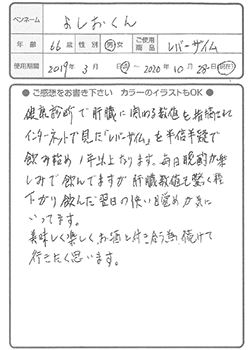 ペンネーム よしおくん
年齢 66才 性別 男・女 ご使用商品 レバーサイム
使用期間 2019年3月 日〜2020年10月28日(現在)
●ご感想をお書き下さい カラーのイラストもOK●
健康診断で肝臓に関わる数値を指摘され
インターネットで見た「レバーサイム」を半信半疑で
飲み始め1年以上たちます。毎日晩酌が楽
しみで飲んでますが肝臓数値も驚く程
下がり飲んだ翌日の快い目覚めが気に
いってます。
美味しく楽しくお酒と付き合う為、続けて
行きたく思います。